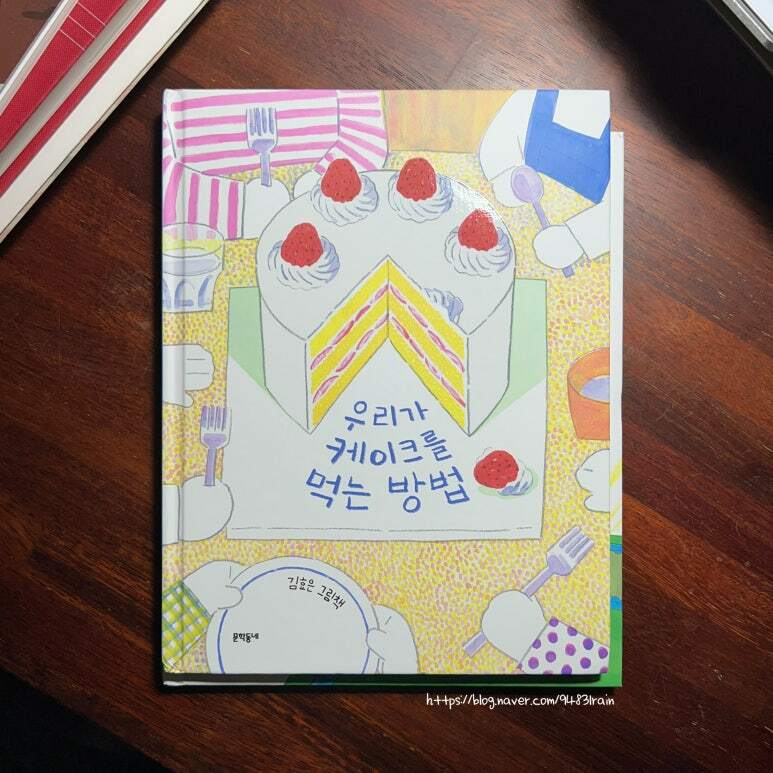 우리가
케이크를
먹는 방법
김효은 그림책
문학동네
https://blog.naver.com/94831rain